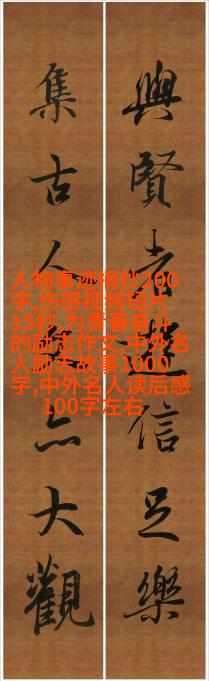 與賢者遊信足樂
集古人文亦大觀
人物事迹摘抄200
字,伤感视频短片
15秒,为青春奋斗
的励志作文,中外名
人励志故事1000
字,中外名人读后感
100字左右